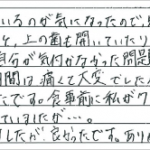 いるのが気になったので、
、上の歯も開いていたり
自分が気付かなかった問題
間は痛くて大変でしたが
たです。食事前に私がワ
ていましたが…。
したが、良かったです。あり